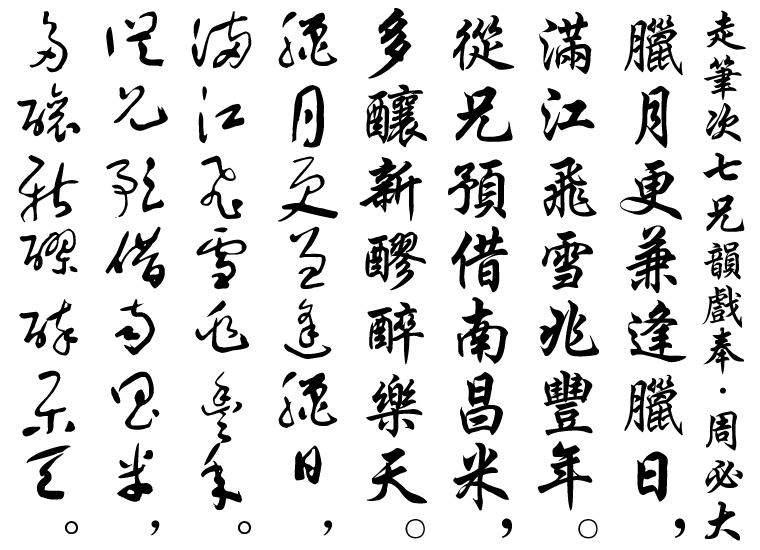 走筆次七兄韻戲奉·周必大
臘月更兼逢臘日，
滿江飛雪兆豐年。
從兄預借南昌米，
多釀新醪醉樂天。
臘月更兼逢臘日，
滿江飛雪兆豐年。
從兄預借南昌米，
多釀新醪醉樂天。